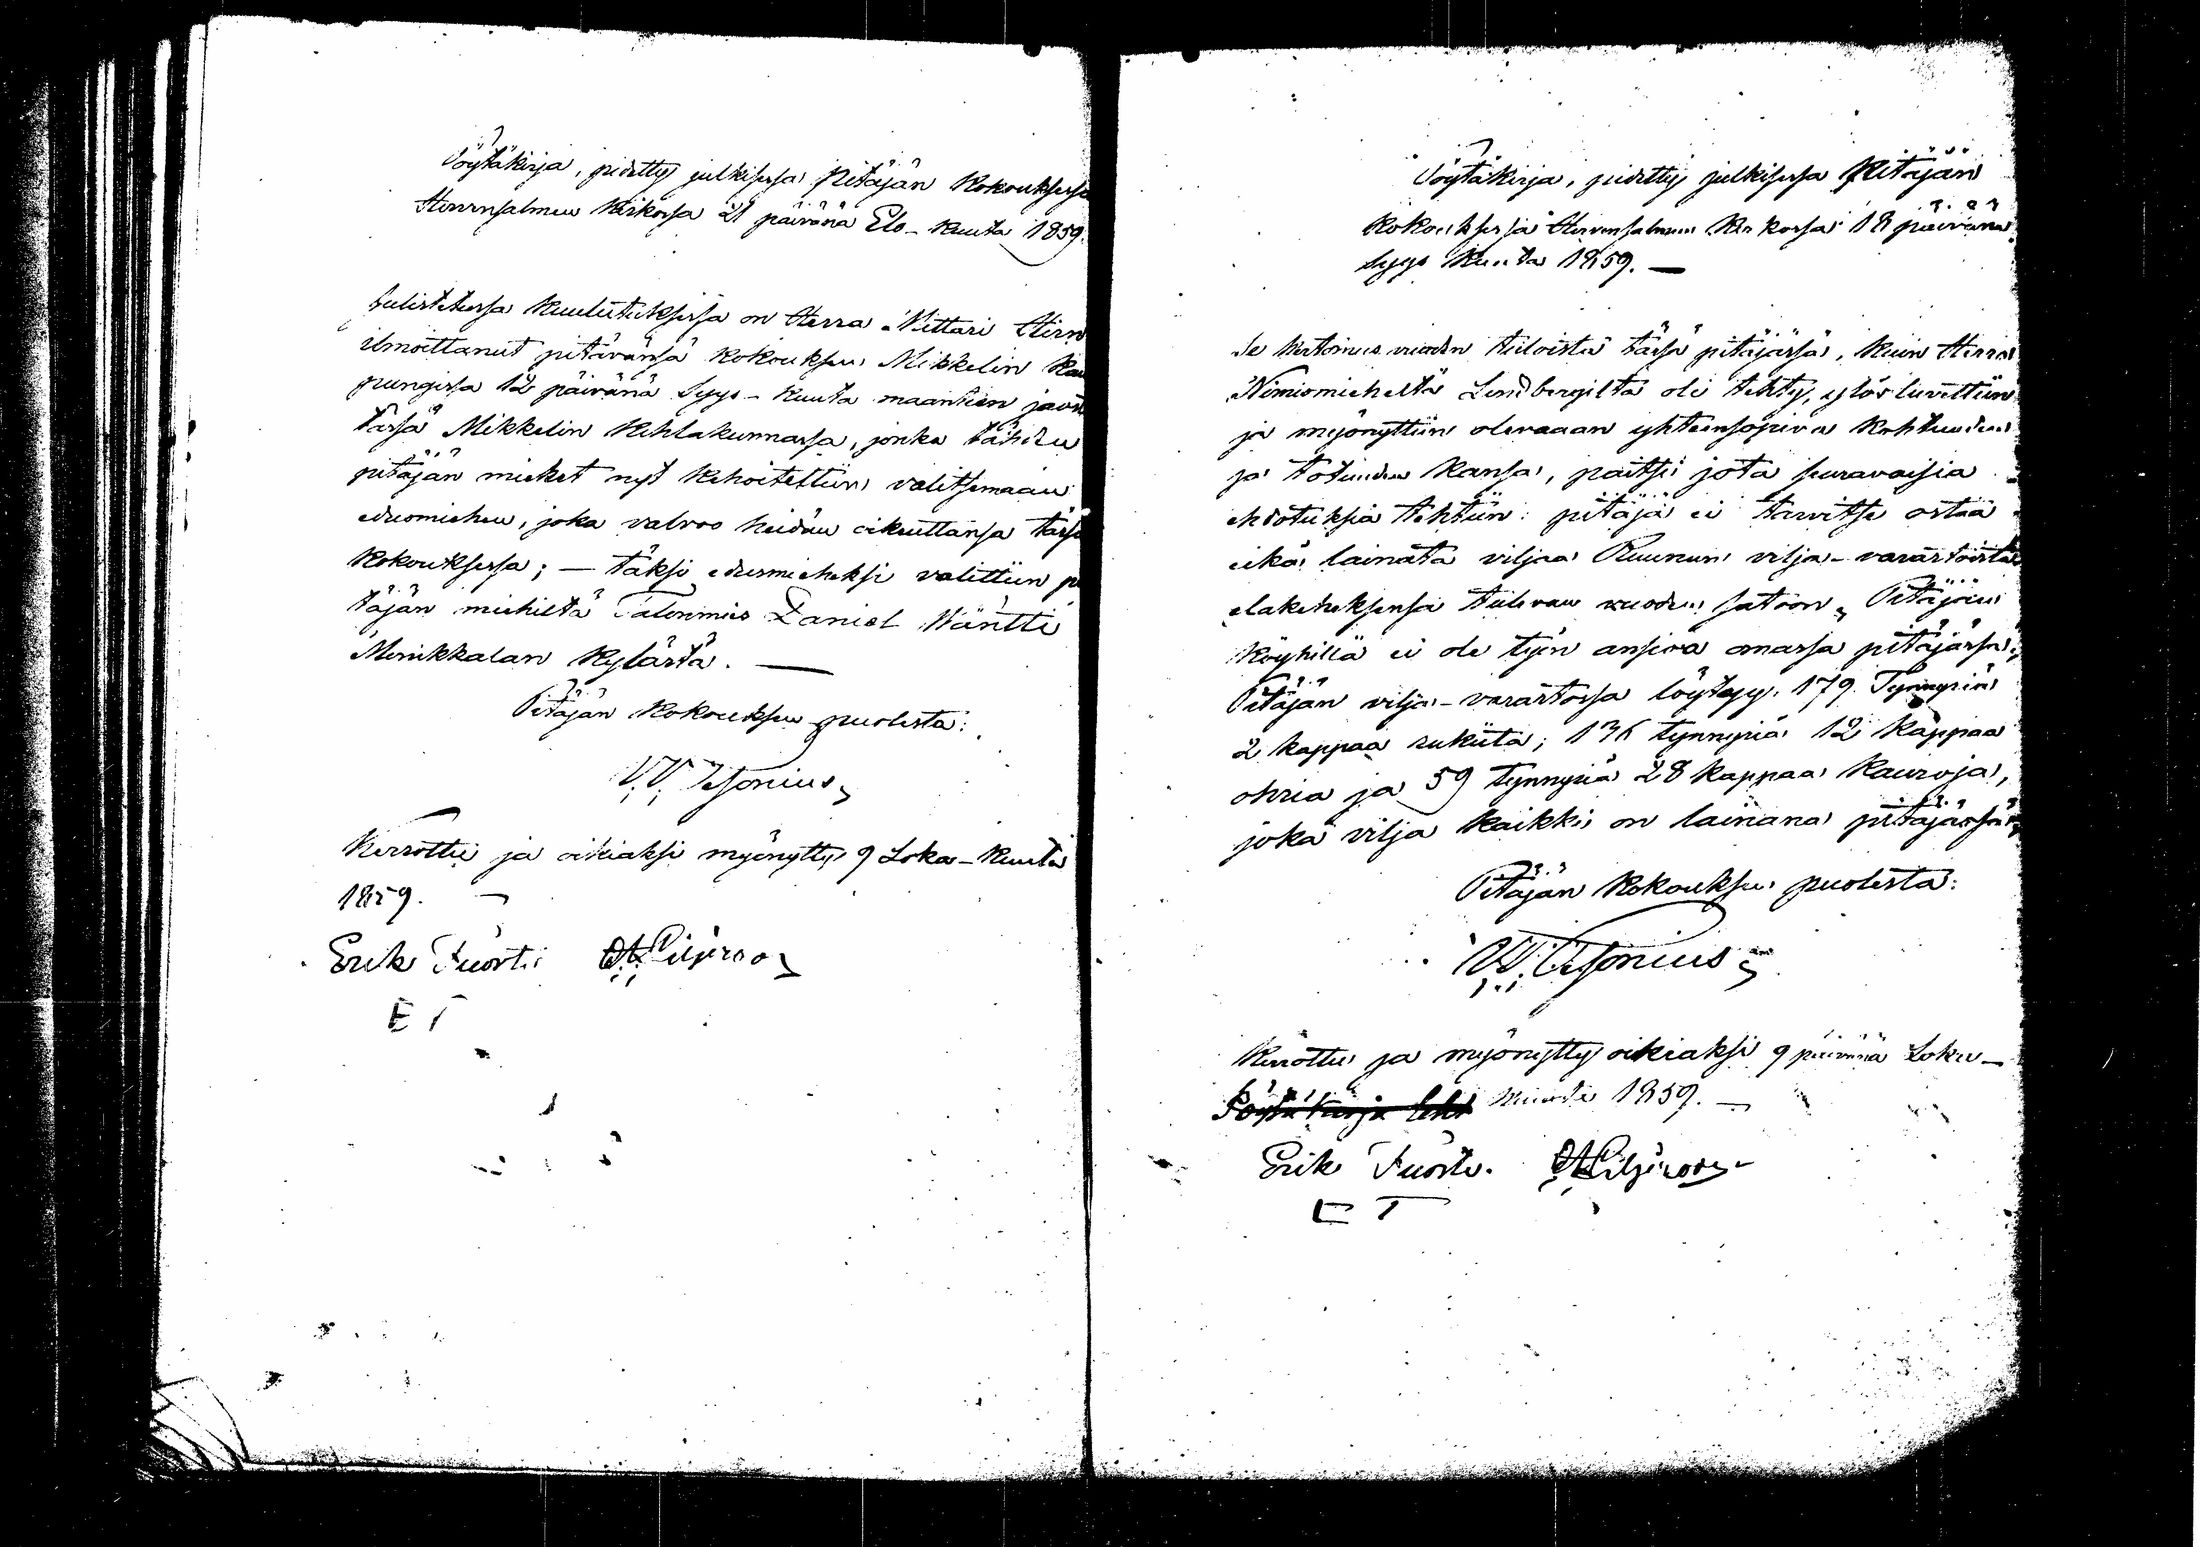 Pöytäkirja, pidetty julkisessa Pitäjän Kokouksessa
Hirvensalmen Kirkossa 21 päivänä Elo-Kuuta 1859.
Julistetussa Kuulutuksessa on Herra Mittari Hirn
ilmoittanut pitävänsä Kokouksen Mikkelin Kau
pungissa 12 päivänä Syys-Kuuta maantien jaon
tässä Mikkelin Kihlakunnassa, jonka tähden
pitäjän miehet nyt Kehoitettiin valitsemaan
edusmiehen, joka valvoo heidän oikeuttansa tässä
Kokouksessa; – täksi edusmieheksi valittiin pi
täjän miehiltä Talonmies Daniel Wäntti
Monikkalan Kylästä. —
Pitäjän Kokouksen puolesta:
W. Tesonius
Kerrottu ja oikiaksi myönytty 9 Loka-Kuuta
1859. –
Erik Tuorti
E T
Pöytäkirja, pidetty julkisessa Pitäjän
Kokouksessa Hirvensalmen Kirkossa 18 päivänä
Syys Kuuta 1859. —
Se Kertomus vuoden tuloista tässä pitäjässä, Kuin Herra
Nimismieheltä Lindbergiltä oli tehty, ylös luvettiin
ja myönyttiin olevaaan yhteensopiva Kohtuuden
ja totuuden Kansa, paitsi jota seuravaisia
ehdotuksia tehtiin: pitäjä ei tarvitse ostaa
eikä lainata viljaa Ruunun vilja-varastoista
elatuksensa tulevan vuoden satoon, Pitäjän
Köyhillä ei ole työn ansiota omassa pitäjässä;
Pitäjän vilja-varastossa löytyy 179 Tynnyriä
2 kappaa rukiita; 136 tynnyriä 12 Kappaa
ohria ja 59 tynnyriä 28 Kappaa Kauroja,
joka vilja Kaikki on lainana pitäjässä
Pitäjän Kokouksen puolesta:
W. Tesonius
Kerrottu ja myönytty oikiaksi 9 päivänä Loka–
Kuuta 1859. –
Erik Tuorti
E T